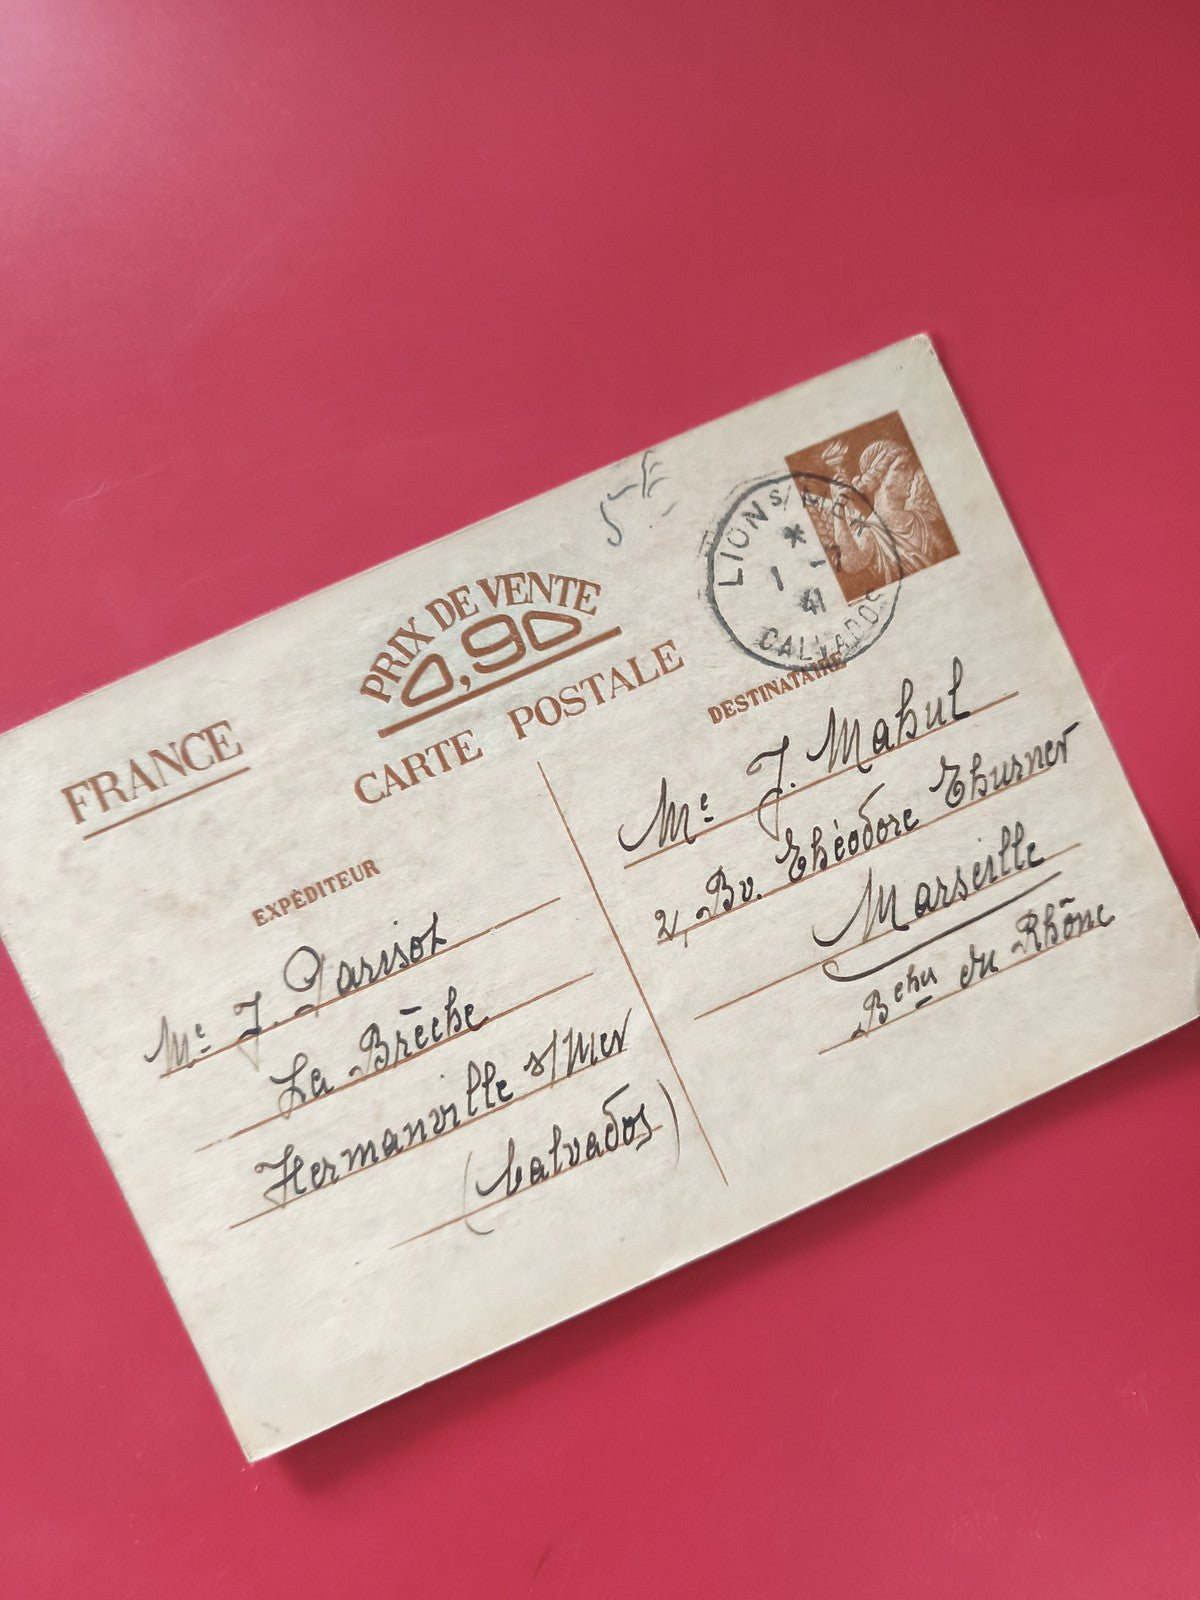 5 Fr
LION S/ MER
*
1 -7
41
CALVADOS
PRIX DE VENTE
0,90
FRANCE
CARTE POSTALE
EXPÉDITEUR
Me J. Parisot
La Brèche
Hermanville s/Mer
(Calvados)
DESTINATAIRE
Me J. Mahul
2, Bv. Théodore Thurner
Marseille
Bches du Rhône